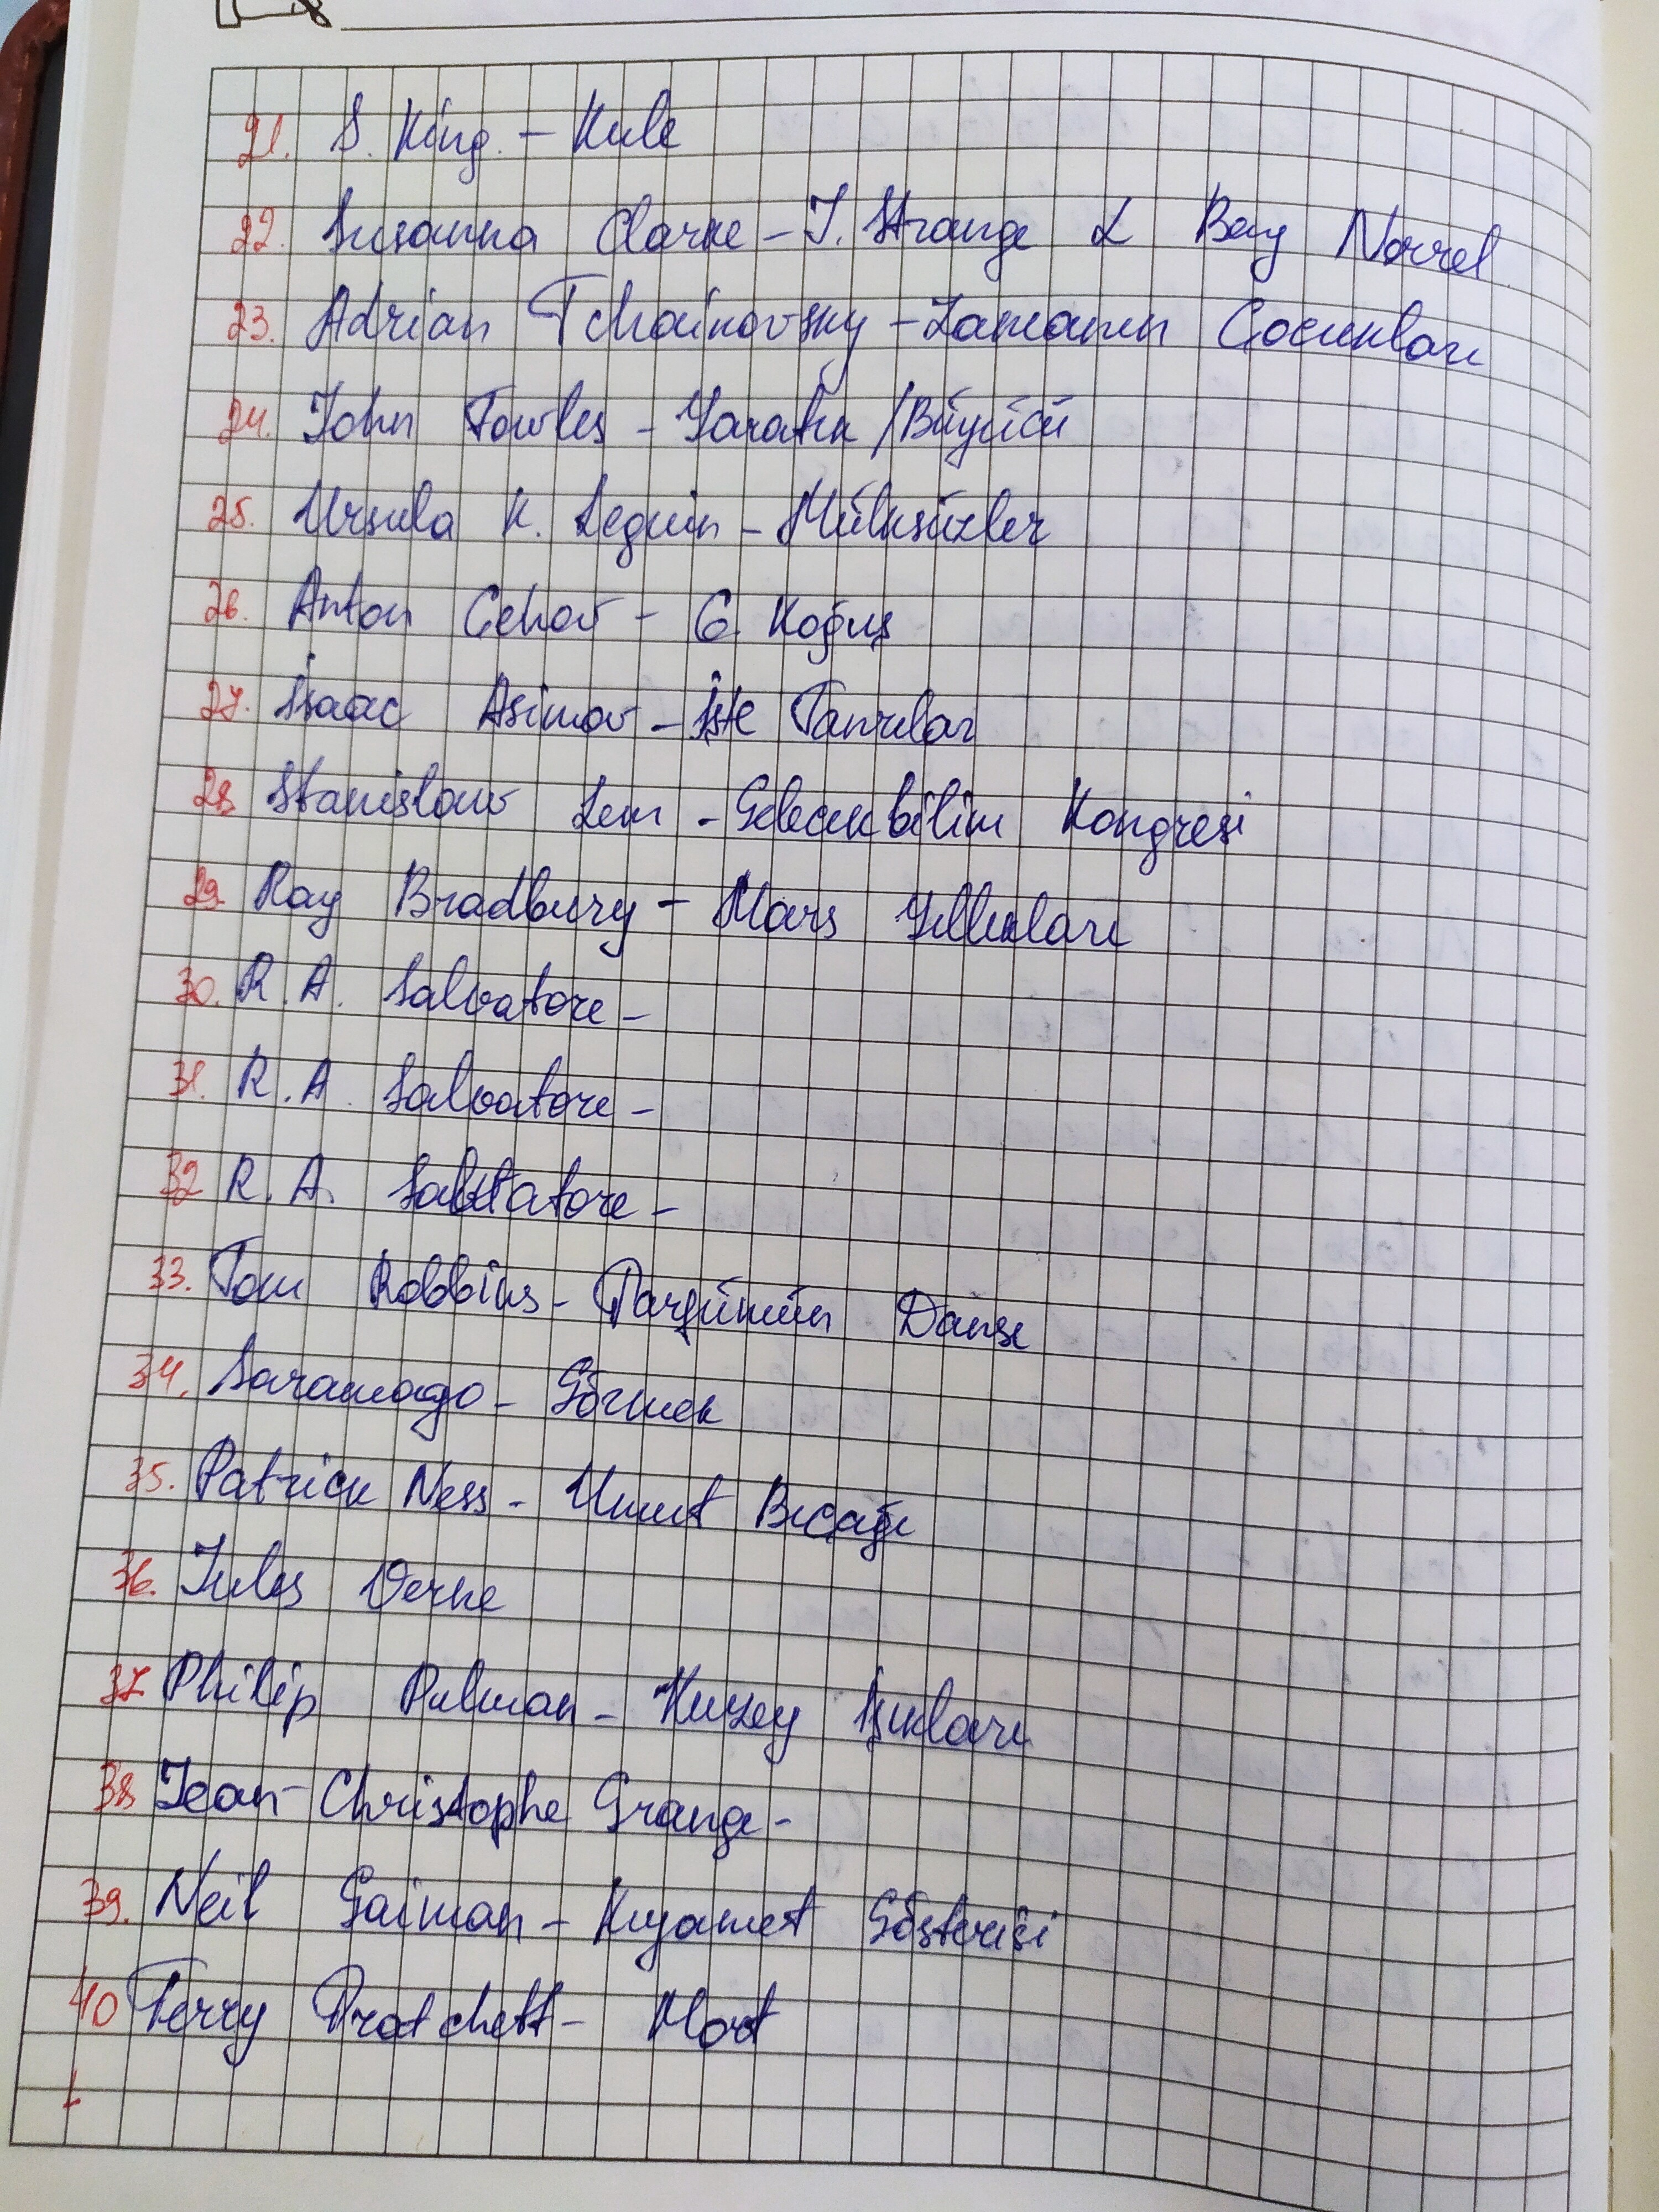 21. S. King. - Kule
22. Susanna Clarke - J. Strange & Bay Norrel
23. Adrian Tchaikovsky - Zamanın Çocukları
24. John Fowles - Yaratık / Büyücü
25. Ursula K. Leguin - Mülksüzler
26. Anton Çehov - 6. Koğuş
27. İsaac Asimov - İşte Tanrılar
28. Stanislaw Lem - Gelecekbilim Kongresi
29. Ray Bradbury - Mars Yıllıkları
30. R. A. Salvatore -
31. R. A. Salvatore -
32 R. A. Salvatore -
33. Tom Robbins - Parfümün Dansı
34. Saramago - Görmek
35. Patrick Ness - Umut Bıçağı
36. Jules Verne
37 Philip Pulman - Kuzey Işıkları
38 Jean-Christophe Grange -
39. Neil Gaiman - Kıyamet Gösterisi
40 Terry Pratchett - Mort